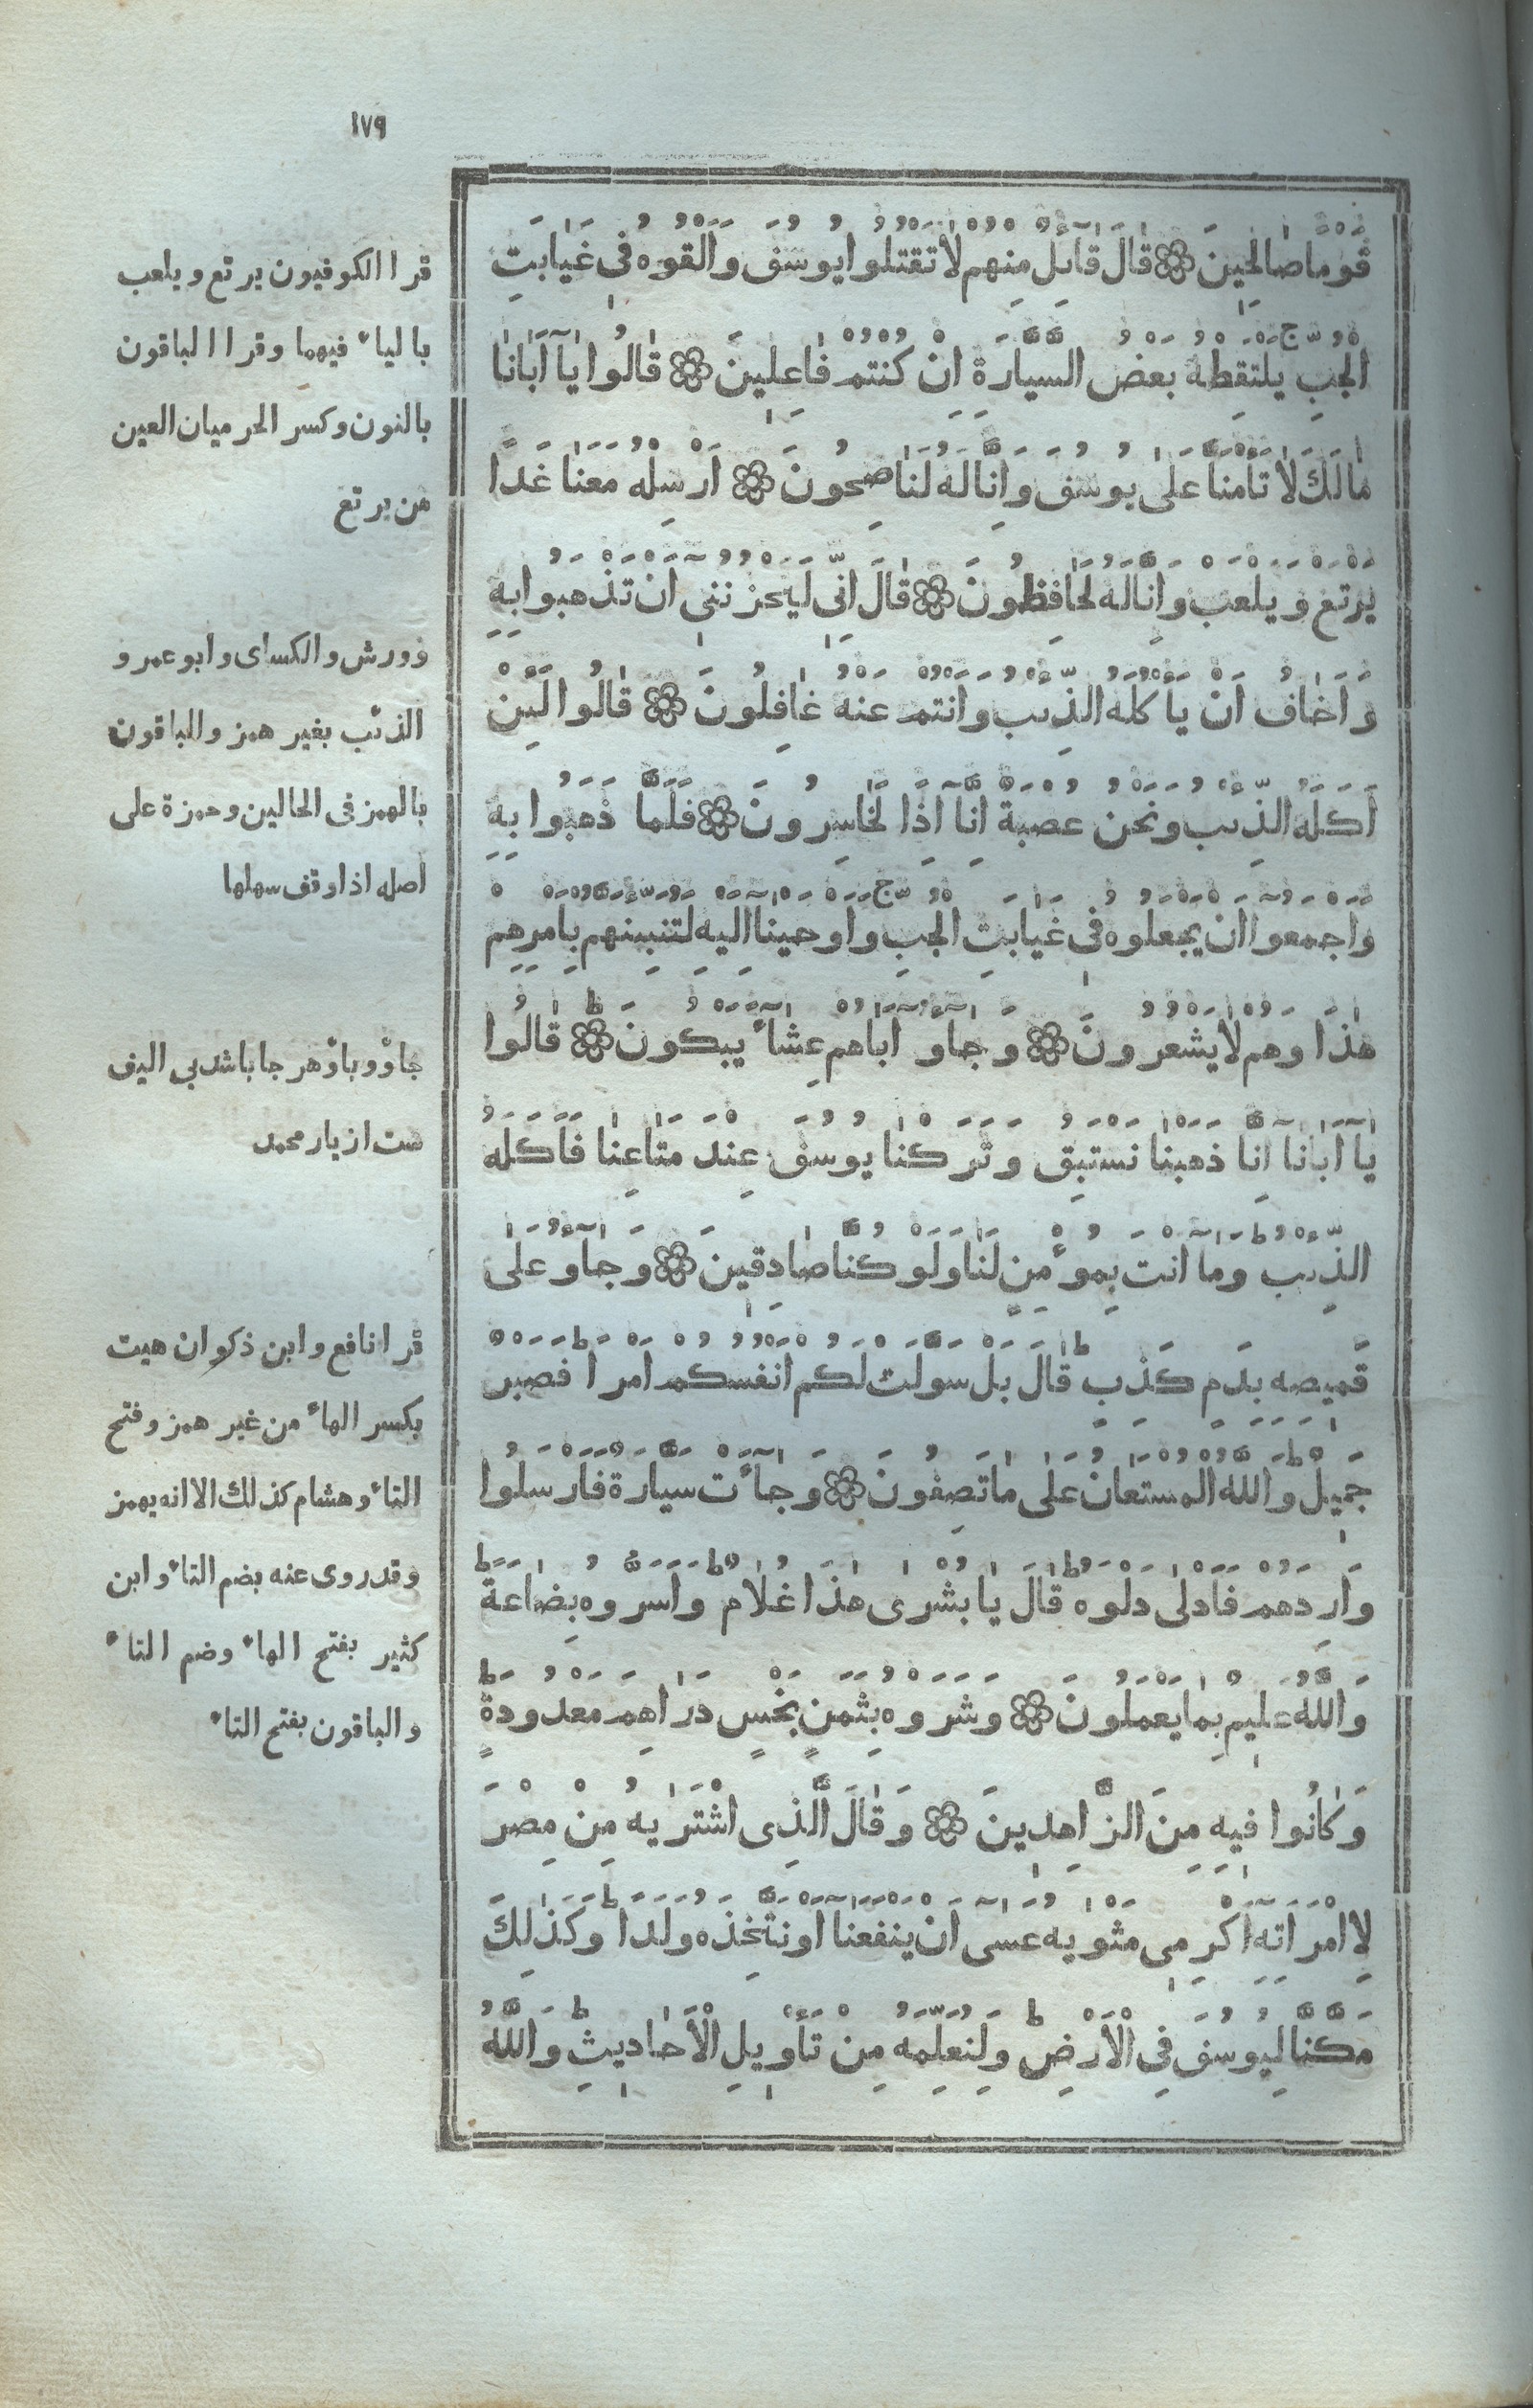 ١٧٩
قَوْمًا صَالِحِينَ ۞ قَالَ قَائِلٌ مِنْهُمْ لَا تَقْتُلُوا يُوسُفَ وَأَلْقُوهُ فِي غَيَابَتِ
الْجُبِّ يَلْتَقِطْهُ بَعْضُ السَّيَّارَةِ اِنْ كُنْتُمْ فَاعِلِينَ ۞ قَالُوا يَآ اَبَانَا
مَالَكَ لَا تَأْمَنَّا عَلَى يُوسُفَ وَاِنَّا لَهُ لَنَاصِحُونَ ۞ اَرْسِلْهُ مَعَنَا غَدًا
يَرْتَعْ وَيَلْعَبْ وَاِنَّا لَهُ لَحَافِظُونَ ۞ قَالَ اِنِّي لَيَحْزُنُنِي اَنْ تَذْهَبُوا بِهِ
وَاَخَافُ اَنْ يَأْكُلَهُ الذِّئْبُ وَاَنْتُمْ عَنْهُ غَافِلُونَ ۞ قَالُوا لَئِنْ
اَكَلَهُ الذِّئْبُ وَنَحْنُ عُصْبَةٌ اِنَّآ اِذًا لَخَاسِرُونَ ۞ فَلَمَّا ذَهَبُوا بِهِ
وَاَجْمَعُوا اَنْ يَجْعَلُوهُ فِي غَيَابَتِ الْجُبِّ وَاَوْحَيْنَا اِلَيْهِ لَتُنَبِّئَنَّهُمْ بِاَمْرِهِمْ
هٰذَا وَهُمْ لَا يَشْعُرُونَ ۞ وَجَاؤُ اَبَاهُمْ عِشَآءً يَبْكُونَ ۞ قَالُوا
يَا اَبَانَا اِنَّا ذَهَبْنَا نَسْتَبِقُ وَتَرَكْنَا يُوسُفَ عِنْدَ مَتَاعِنَا فَاَكَلَهُ
الذِّئْبُ وَمَا اَنْتَ بِمُؤْمِنٍ لَنَا وَلَوْ كُنَّا صَادِقِينَ ۞ وَجَآؤُ عَلَى
قَمِيصِهِ بِدَمٍ كَذِبٍ قَالَ بَلْ سَوَّلَتْ لَكُمْ اَنْفُسُكُمْ اَمْرًا فَصَبْرٌ
جَمِيلٌ وَاللَّهُ الْمُسْتَعَانُ عَلَى مَا تَصِفُونَ ۞ وَجَآءَتْ سَيَّارَةٌ فَاَرْسَلُوا
وَارِدَهُمْ فَاَدْلَى دَلْوَهُ قَالَ يَا بُشْرَى هٰذَا غُلَامٌ وَاَسَرُّوهُ بِضَاعَةً
وَاللَّهُ عَلِيمٌ بِمَا يَعْمَلُونَ ۞ وَشَرَوْهُ بِثَمَنٍ بَخْسٍ دَرَاهِمَ مَعْدُودَةٍ
وَكَانُوا فِيهِ مِنَ الزَّاهِدِينَ ۞ وَقَالَ الَّذِي اشْتَرَيٰهُ مِنْ مِصْرَ
لِامْرَاَتِهِ اَكْرِمِي مَثْوَيٰهُ عَسَى اَنْ يَنْفَعَنَا اَوْ نَتَّخِذَهُ وَلَدًا وَكَذٰلِكَ
مَكَّنَّا لِيُوسُفَ فِي الْاَرْضِ وَلِنُعَلِّمَهُ مِنْ تَأْوِيلِ الْاَحَادِيثِ وَاللَّهُ
قرا الكوفيون يرتع ويلعب
بالياء فيهما وقرا الباقون
بالنون وكسر الحرميان العين
من يرتع
وورش والكساى وابو عمرو
الذئب بغير همز والباقون
بالهمز فى الحالين وحمزة على
اصله اذا وقف سهلها
جاؤ و باؤ هر جا باشد بى اليف
ست از يار محمد
قرا نافع وابن ذكوان هيت
بكسر الهاء من غير همز وفتح
التاء وهشام كذلك الا انه يهمز
وقد روى عنه بضم التاء وابن
كثير بفتح الهاء وضم التاء
والباقون بفتح التاء